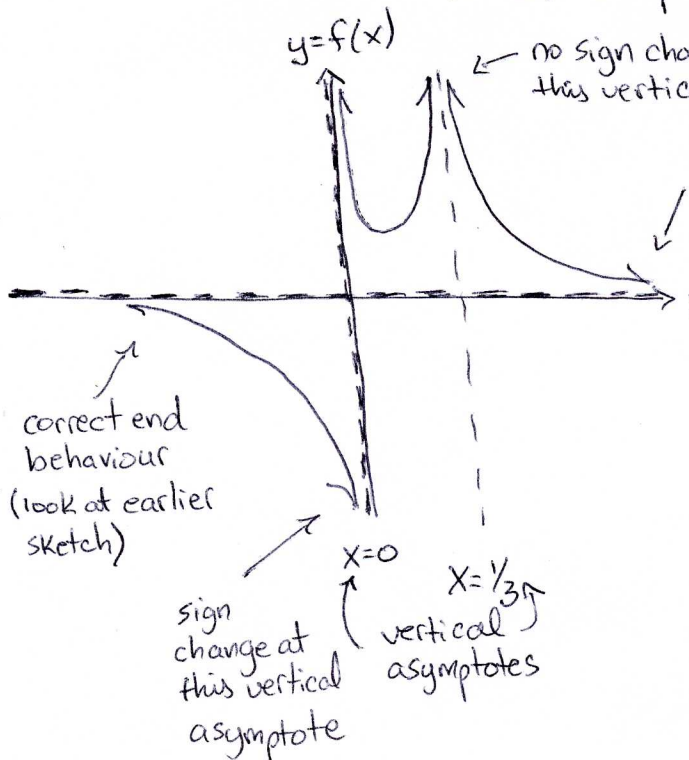 y=f(x)
no sign cha
this vertic
correct end
behaviour
(look at earlier
sketch)
sign
change at
this vertical
asymptote
x=0
x=1/3
vertical
asymptotes